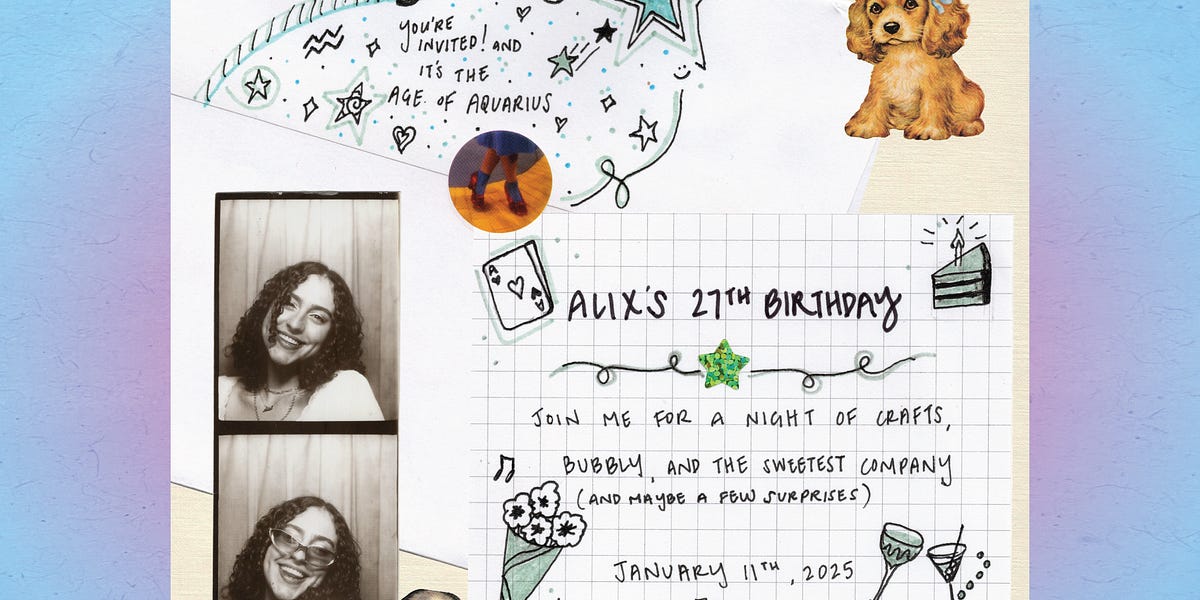 YOU'RE
INVITED! AND
IT'S THE
AGE OF AQUARIUS
A
A
ALIX'S 27TH BIRTHDAY
JOIN ME FOR A NIGHT OF CRAFTS,
BUBBLY, AND THE SWEETEST COMPANY
(AND MAYBE A FEW SURPRISES)
JANUARY 11TH, 2025